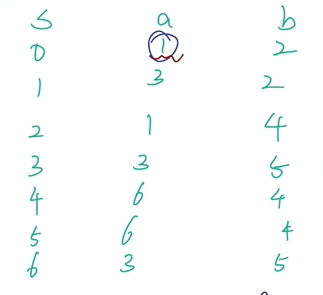 S a b
0 1 2
1 3 2
2 1 4
3 3 5
4 6 4
5 6 4
6 3 5